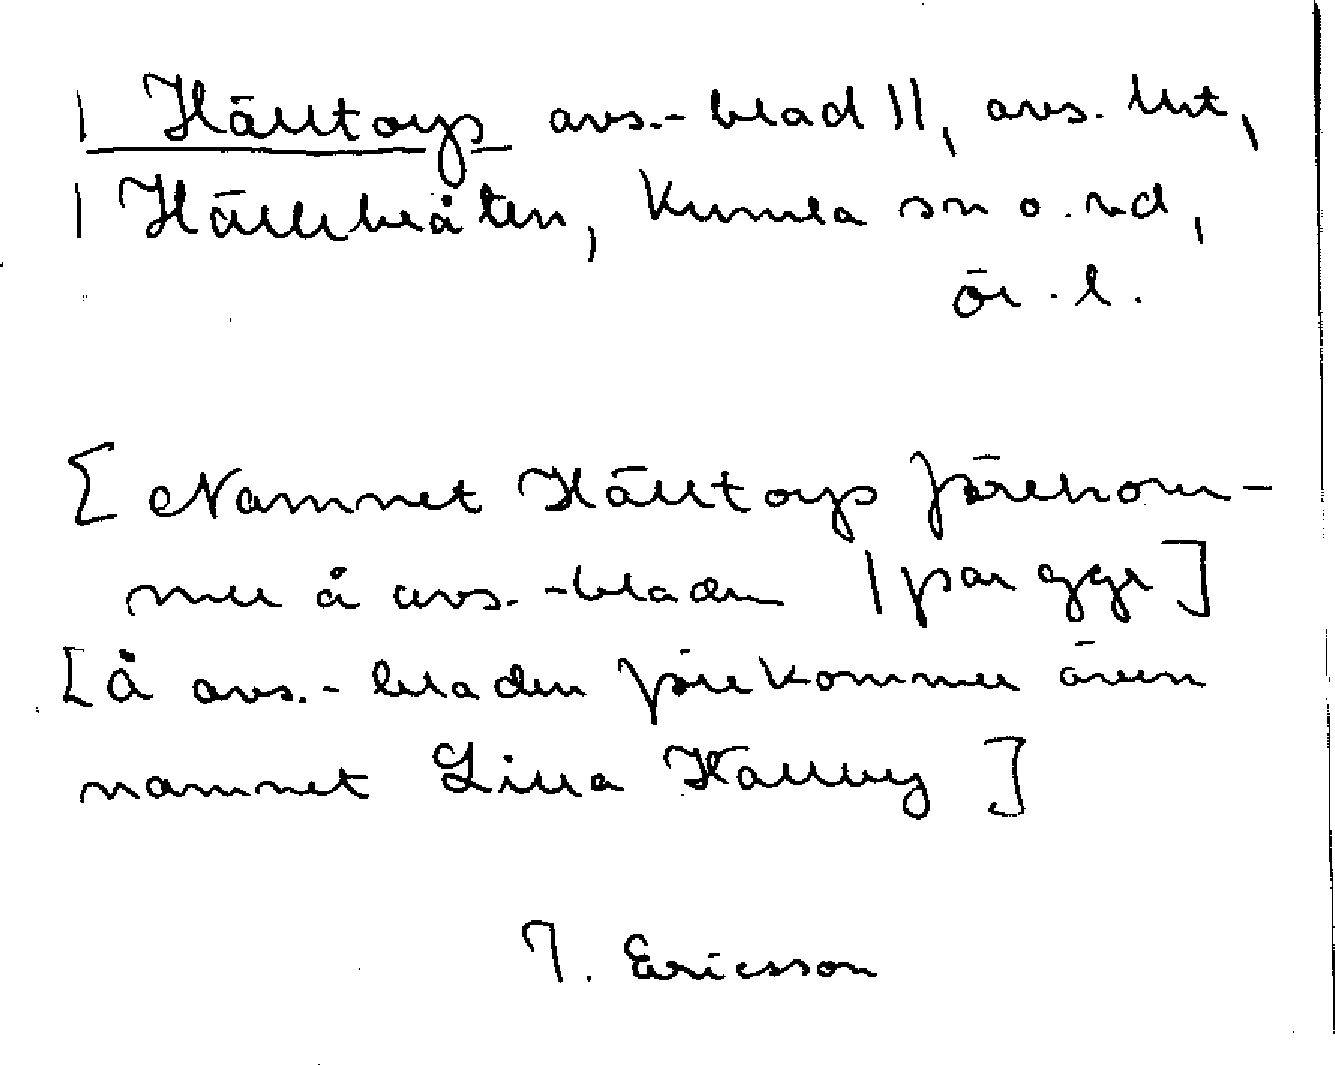 | Hälltorp avs.-blad 11, avs. lht,
| Hällebråten, Kumla sn o. hd,
ör. l.
[Namnet Hälltorp förekom-
mer å avs.-bladen | par ggr]
[Å avs.-bladen förekommer även
namnet Lilla Hallby]
T. Ericsson